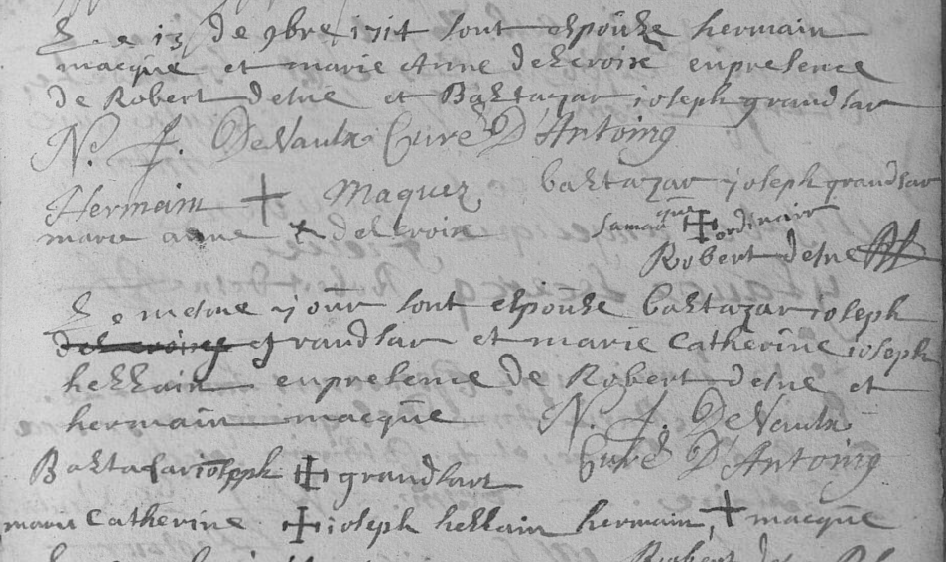 Le 13 de 9bre 1714 sont espoúse hermain
macque et marie Anne delcroix en presence
de Robert desne et Baltazar ioseph grandsar
N. J. DeVaulx Curé D'Antoing
Hermain + Maquez baltazar joseph grandsar
marie anne + delcroix sa marque + ordinair
Robert desne
Le mesme jour sont espoúse baltazar ioseph
grandsar et marie Catherine ioseph
hellain en presence de Robert desne et
hermain macque N. J. DeVaulx
Curé D'Antoing
Baltasar ioseph + grandsart
marie Catherine + ioseph hellain hermain + macque